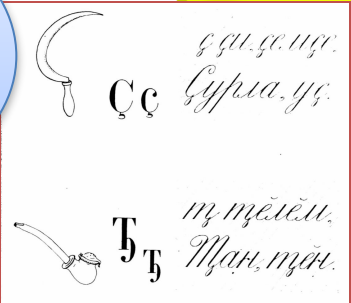 Ҫ ҫ
ҫ ҫи. ҫе. иҫе.
Ҫурла, уҫ.
Ꚋ ꚋ
ꚋ ꚋĕлĕм.
Ꚋан, ꚋĕн.